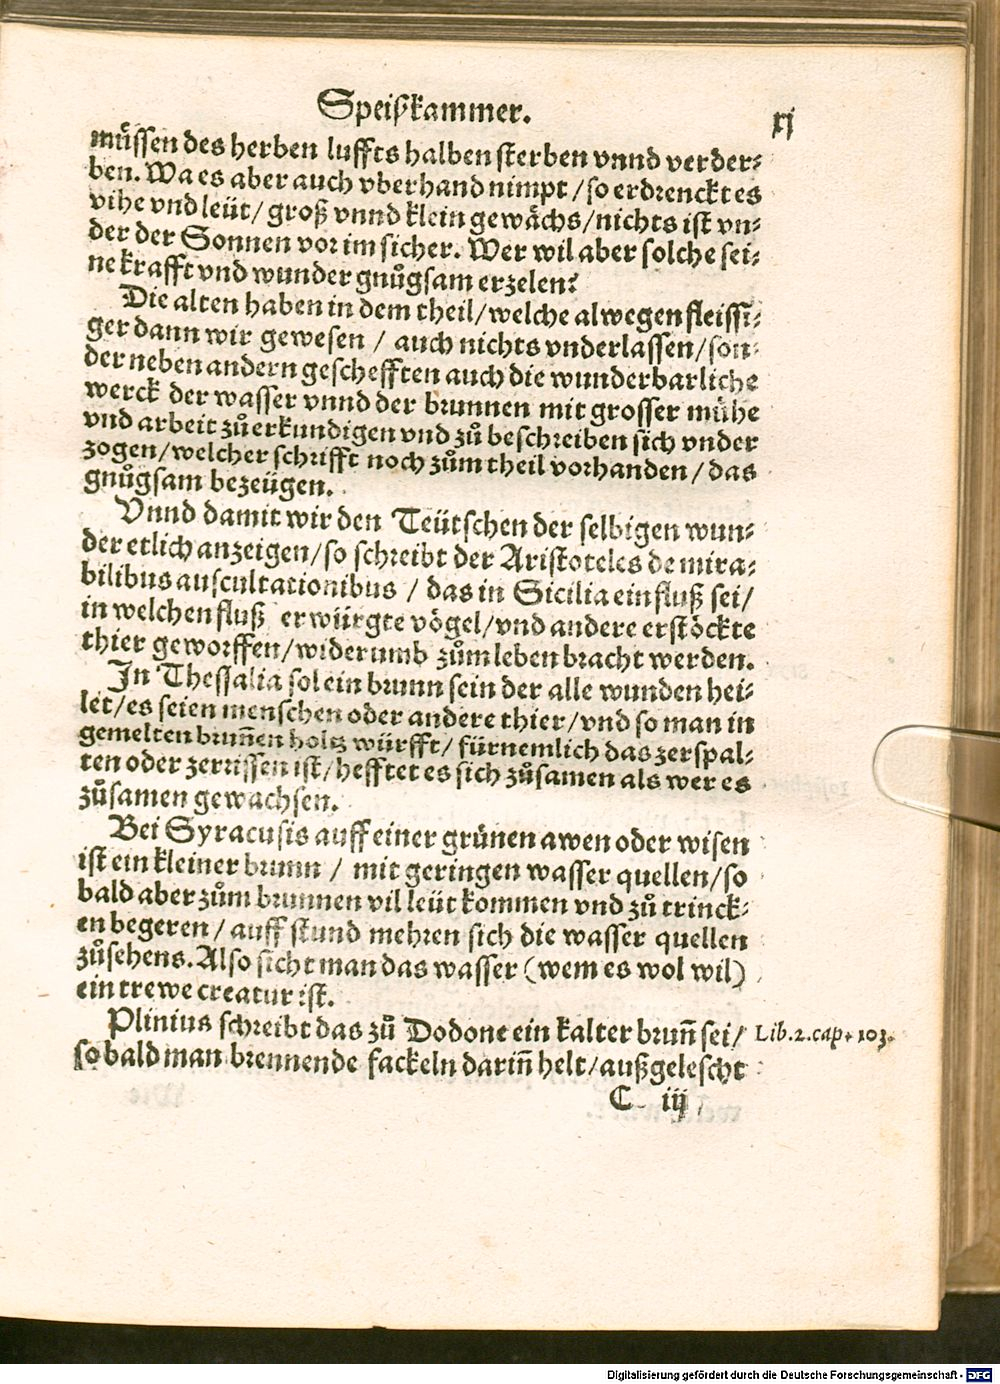 Speißkammer.
xj
müssen des herben luffts halben sterben vnnd verder⸗
ben. Wa es aber auch vberhand nimpt / so erdrenckt es
vihe vnd leüt / groß vnnd klein gewächs / nichts ist vn⸗
der der Sonnen vor im sicher. Wer wil aber solche sei⸗
ne krafft vnd wunder gnůgsam erzelen?
Die alten haben in dem theil / welche alwegen fleissi⸗
ger dann wir gewesen / auch nichts vnderlassen / son⸗
der neben andern geschefften auch die wunderbarliche
werck der wasser vnnd der brunnen mit grosser mühe
vnd arbeit zů erkundigen vnd zů beschreiben sich vnder
zogen / welcher schrifft noch zům theil vorhanden / das
gnůgsam bezeügen.
Vnnd damit wir den Teütschen der selbigen wun⸗
der etlich anzeigen / so schreibt der Aristoteles de mira⸗
bilibus auscultationibus / das in Sicilia ein fluß sei /
in welchen fluß erwürgte vögel / vnd andere erstöckte
thier geworffen / widerumb zům leben bracht werden.
In Thessalia sol ein brunn sein der alle wunden hei⸗
let / es seien menschen oder andere thier / vnd so man in
gemelten brun̄en holtz würfft / fürnemlich das zerspal⸗
ten oder zerrissen ist / hefftet es sich zůsamen als wer es
zůsamen gewachsen.
Bei Syracusis auff einer grünen awen oder wisen
ist ein kleiner brunn / mit geringen wasser quellen / so
bald aber zům brunnen vil leüt kommen vnd zů trinck⸗
en begeren / auff stund mehren sich die wasser quellen
zůsehens. Also sicht man das wasser (wem es wol wil)
ein trewe creatur ist.
Plinius schreibt das zů Dodone ein kalter brun̄ sei /
Lib. 2. cap. 103.
so bald man brennende fackeln darin̄ helt / außgelescht
C iij
Digitalisierung gefördert durch die Deutsche Forschungsgemeinschaft - DFG